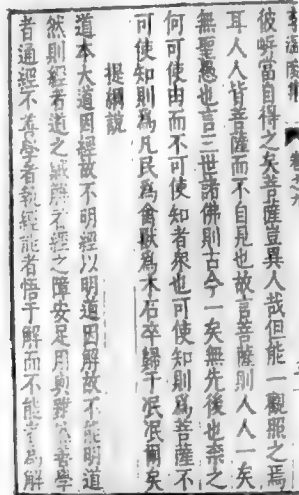 彼岸當自得之矣菩薩豈異人哉但能一觀照之焉
耳人人皆菩薩而不自見也故言菩薩則人人一矣
無聖愚也言三世諸佛則古今一矣無先後也奈之
何可使由而不可使知者衆也可使知則爲菩薩不
可使知則爲凡民爲禽獸爲木石卒歸于泯泯爾矣
提綱說
道本大道因經故不明經以明道因解故不能明道
然則經者道之賊解者經之障安足用與雖然善學
者通經不善學者執經能者悟于解而不能者爲解